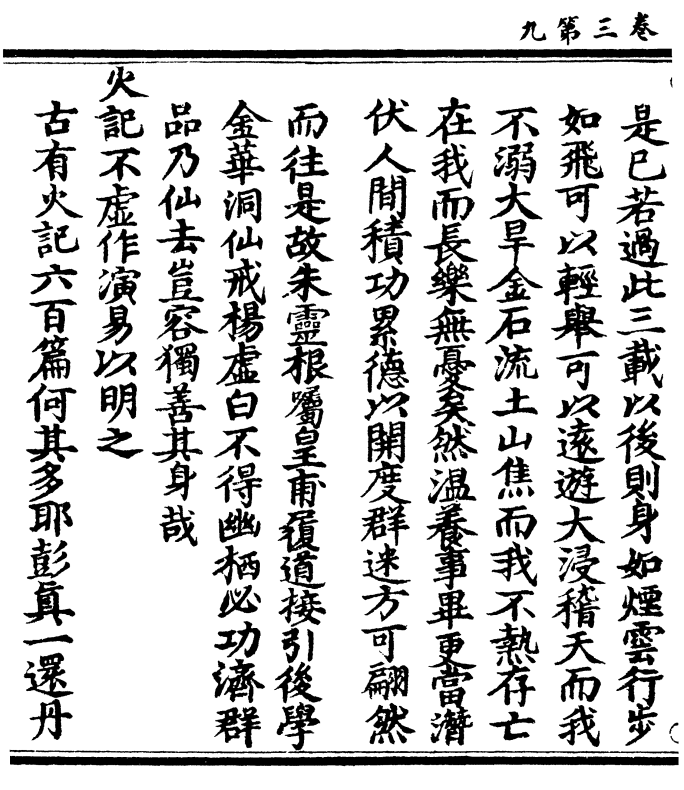 卷三第九
是已若過此三載以後則身如煙雲行步
如飛可以輕舉可以遠遊大浸稽天而我
不溺大旱金石流土山焦而我不熱存亡
在我而長樂無憂矣然温養事畢更當濳
伏人間積功累德以開度群迷方可翩然
而往是故朱靈根囑皇甫履道接引後學
金華洞仙戒楊虛白不得幽栖必功濟群
品乃仙去豈容獨善其身哉
火記不虛作演易以明之
古有火記六百篇何其多耶彭真一還丹